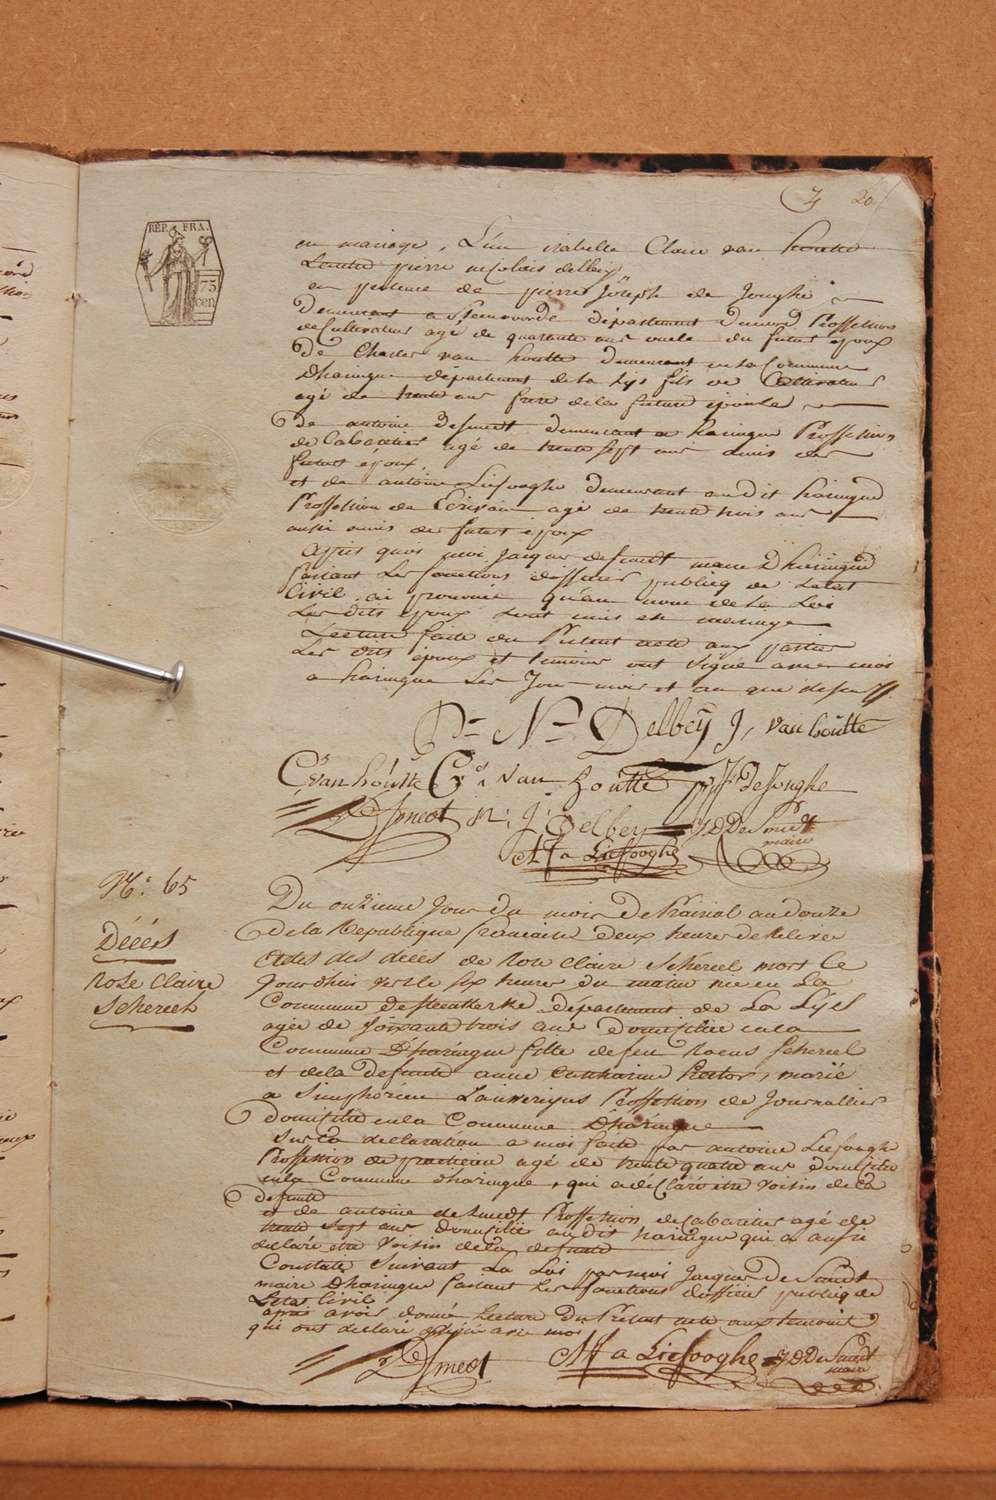 20
REP. FRA.
75
cen
en mariage, L'un isabelle Claire van houtte
Lautre pierre nicolais delbeÿ
en presence de pierre Joseph de Jonghe
demeurant a Steenvorde département du nord Profession
de Cultivateur agé de quarante ans oncle du futur epoux
De Charles van houtte demeurant en la Commune
Dharingue département de la Lijs fils de Cultivateur
agé de trente ans frere de la future épouse
De antoine Desmedt demeurant a haringue Profession
de Cabaretier agé de trente sept ans amis des
futurs époux,
et de antoine Liefooghe demeurant audit haringue
Profession de Ecrivain agé de trente trois ans
aussi amis des futurs epoux
Après quoi moi Jacques desmedt maire Dharingue
faisant Les fonctions d'officier publicq de Letat
Civil, ai prononcé qu'au nom de la Loi
Les dits epoux sont unis en mariage
Lecture faite du Présent acte aux parties
Les dits époux et temoins ont Signé avec moi
a haringue Les Jour mois et an que dessus
Pre Nas Delbeÿ J, van houtte
C, van hòutte Cs, Van houtte DeJonghe
DSmedt N: J: Delbey J D De Smedt
maire
A Liefooghe
No: 65
Décés
Roze Claire
Schercel
Du onzieme Jour du mois de Prairial an douze
de la Republique francaise deux heures de Relevée
Actes des déces de Rose Claire Schercel mort Ce
Jourdhui vers le six heures du matin née en La
Commune de Steenkerke département de La Lijs
agée de Soixante trois ans domiciliée en la
Commune Dharingue fille de feu Schercel
et de la defunte anne Catharine marié
a Lauwerijns Profession de Journallier
domicilié en la Commune Dharingue
Sur la declaration a moi faite par antoine Liefooghe
Profession de praticien agé de trente quatre ans domicilié
en la Commune dharingue, qui a déclaré être Voisin de la
defunte
et de antoine de Smedt Profession de Cabaretier agé de
trente Sept ans domicilié audit haringue qui a aussi
declaré etre voisin de la defunte
Constaté Suivant La Loi par moi Jacques De Smedt
maire Dharingue faisant Les fonctions d'officier publicq de
Letat Civil
apres avoir donné Lecture du Présent acte aux temoins
qui ont declaré avec moi
DSmedt A Liefooghe J D De Smedt
maire